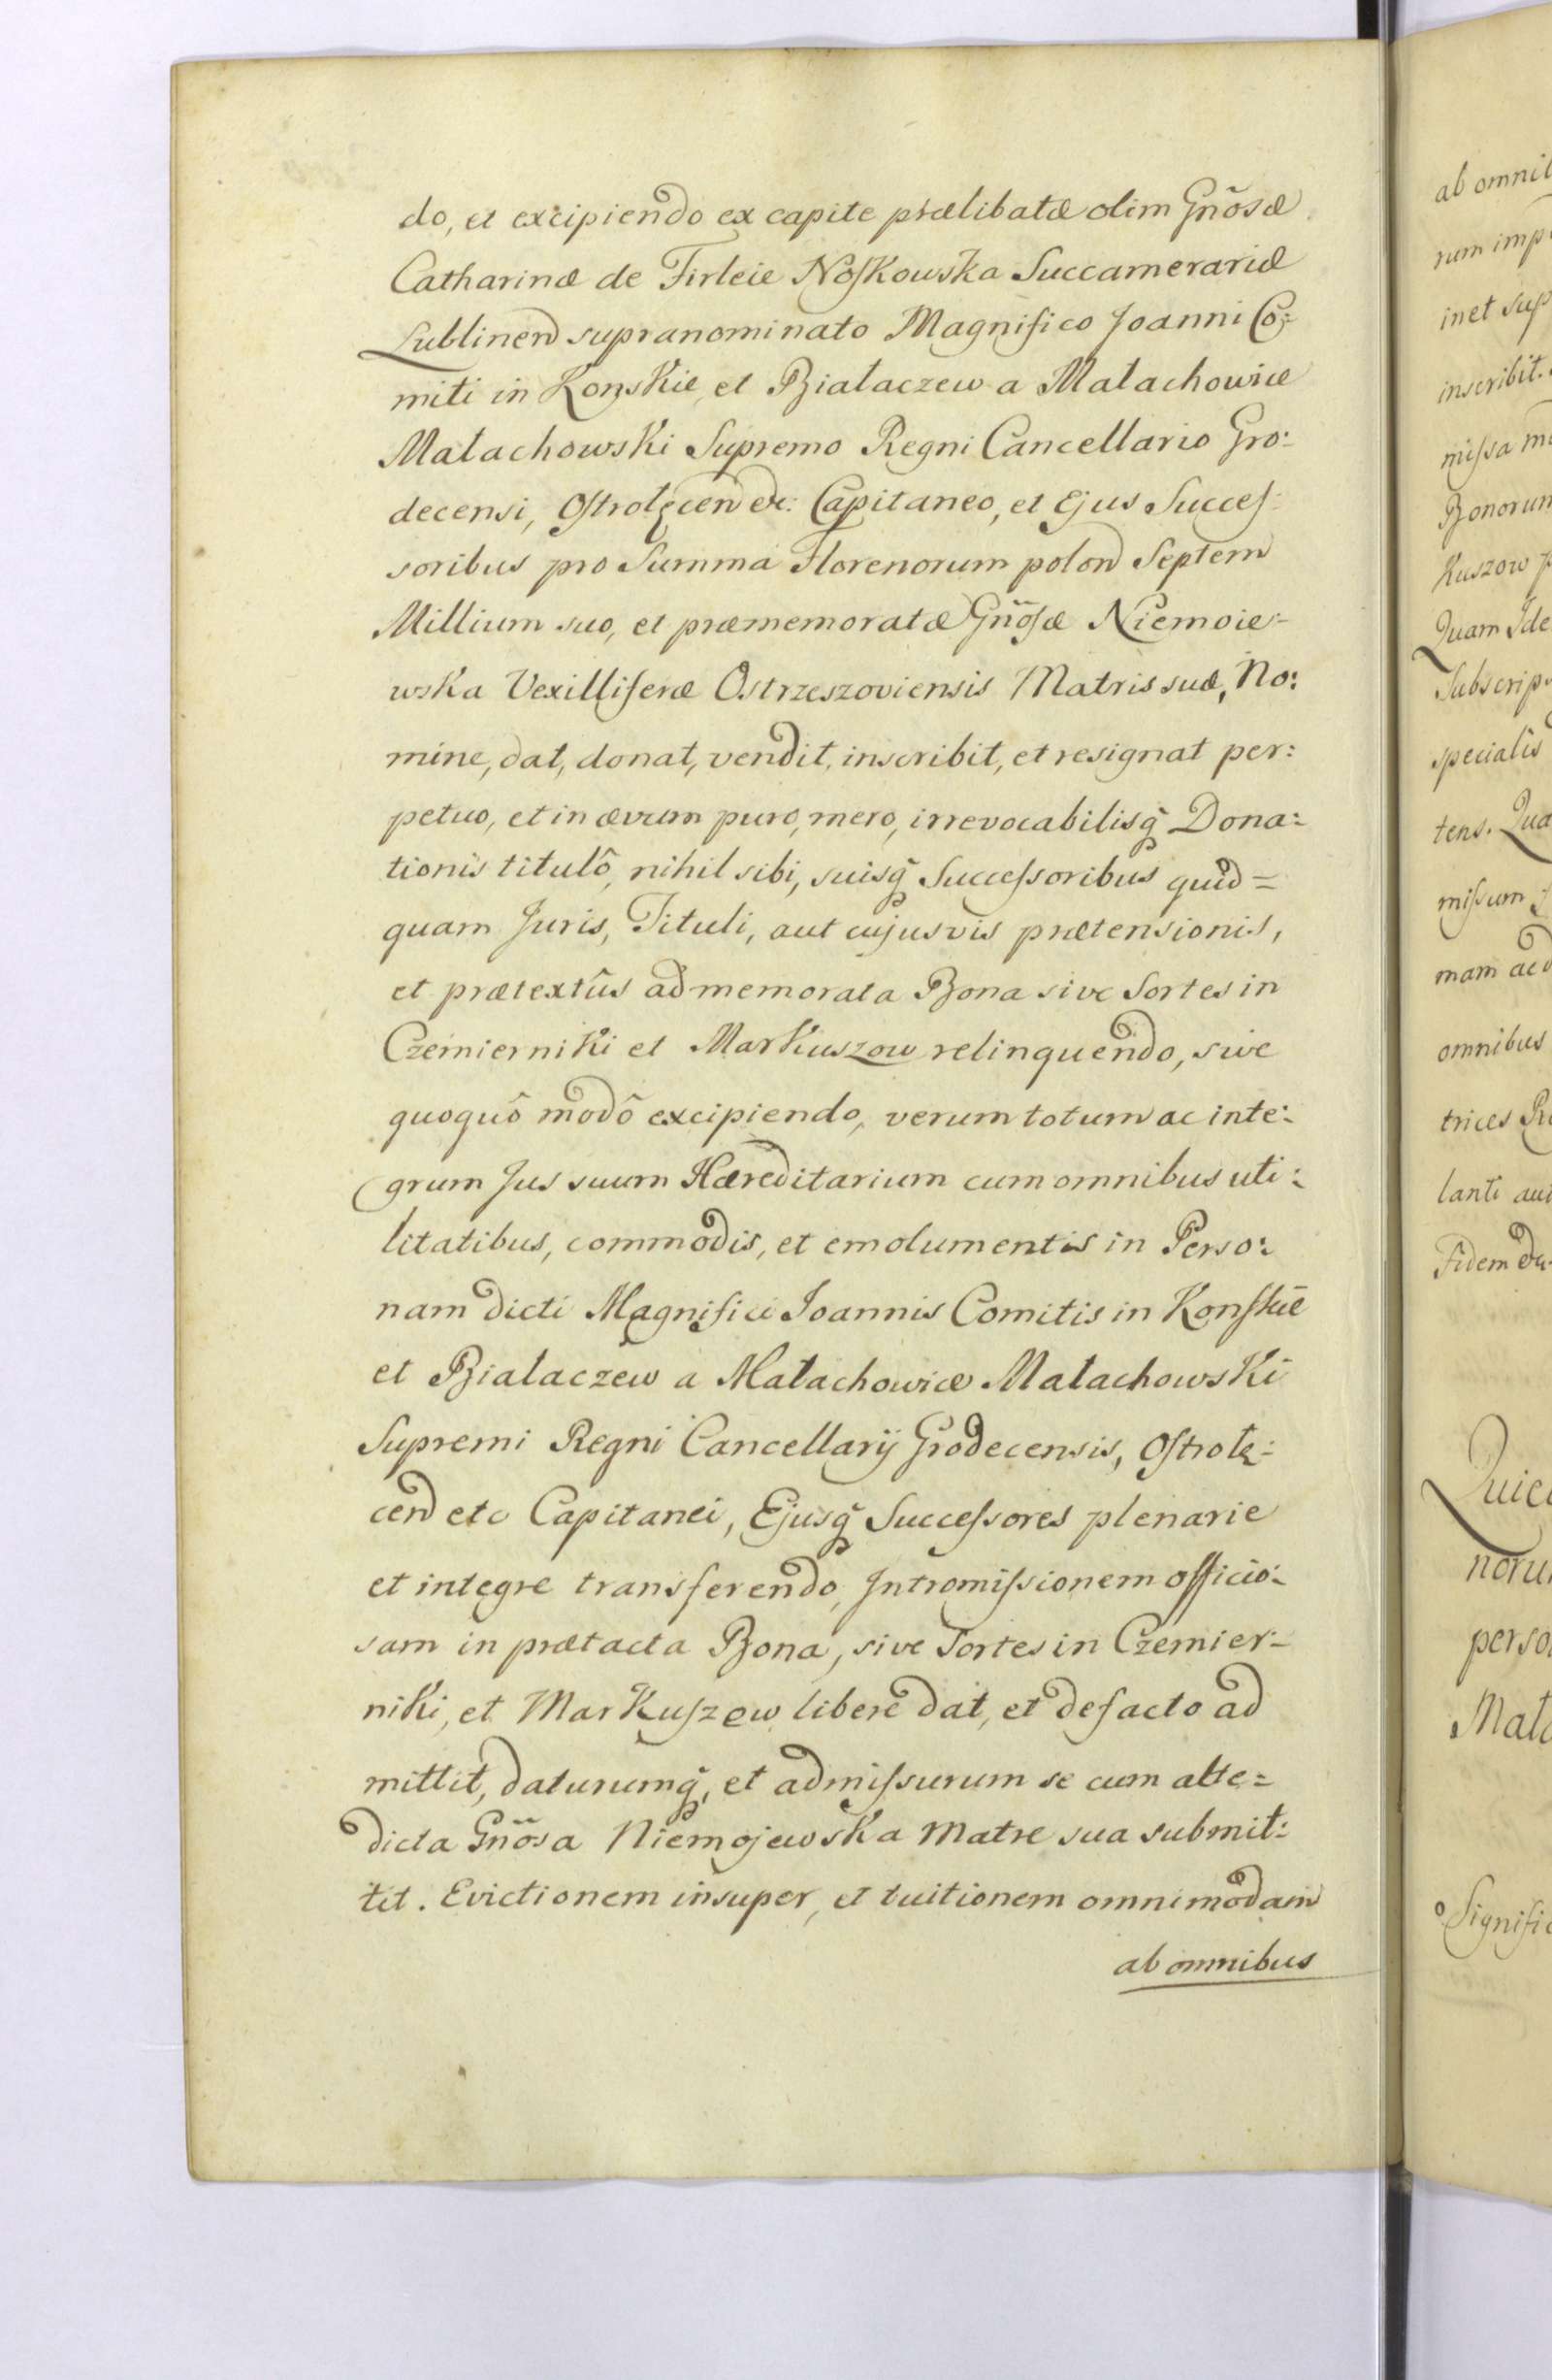 do, et excipiendo ex capite prælibatæ olim Gñosæ
Catharinæ de Firleie Noskowska Succamerariæ
Lublinen supranominato Magnifico Joanni Co:
miti in Konskie, et Białaczew a Małachowice
Małachowski Supremo Regni Cancellario Gro:
decensi, Ostrołęcen etc: Capitaneo, et Ejus Succes:
soribus pro Summa Florenorum polon Septem
Millium suo, et præmemoratæ Gñosæ Niemoie:
wska Vexilliferæ Ostrzeszoviensis Matris suæ, No:
mine, dat, donat, vendit, inscribit, et resignat per:
petuo, et in ævum puro, mero, irrevocabilisq̃ Dona:
tionis titulô, nihil sibi, suisq̃ Successoribus quid=
quam Juris, Tituli, aut cujusvis prætensionis,
et prætextûs ad memorata Bona sive Sortes in
Czemierniki et Markuszow relinquendo, sive
quoquô modô excipiendo, verum totum ac inte:
grum Jus suum Hæreditarium cum omnibus uti:
litatibus, commodis, et emolumentis in Perso:
nam dicti Magnifici Joannis Comitis in Konskie
et Białaczew a Małachowice Małachowski
Supremi Regni Cancellarij Grodecensis, Ostrołę:
cen etc Capitanei, Ejusq̃ Successores plenarie
et integre transferendo, Intromissionem officio:
sam in prætacta Bona, sive Sortes in Czemier:
niki, et Markuszew libere dat, et defacto ad
mittit, daturumq̃, et admissurum se cum alte=
dicta Gñosa Niemojewska Matre sua submit:
tit. Evictionem insuper, et tuitionem omnimodam
ab omnibus
ab omnib
rum imp
inet sup
inscribit.
missa m
Bonorum
Kuszow
Quam Ide
Subscrip
specialis
tens. Qua
missum
mam ac
omnibus
trices
lanti
Fidem
Quie
noru
perso
Mała
Signific